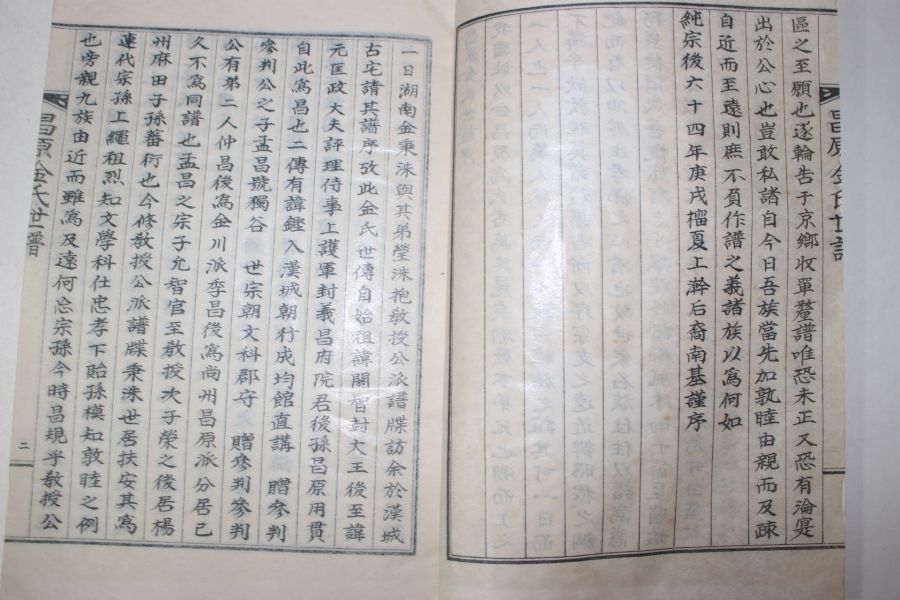 區之至願也遂輪告于京鄉收單釐譜唯恐未正又恐有淪寔
出於公心也豈敢私諸自今日吾族當先加敦睦由親而及疎
自近而至遠則庶不負作譜之義諸族以爲何如
純宗後六十四年庚戌榴夏上澣后裔南基謹序
昌原金氏世譜
一日湖南金秉洙與其弟瑩洙抱敎授公派譜牒訪余於漢城
古宅請其譜序攷此金氏世傳自始祖諱關智封大王後至諱
元匡政大夫評理侍事上護軍封義昌府院君後孫昌原用貫
自此爲昌也二傳有諱鏗入漢城朝行成均館直講 贈參判
參判公之子孟昌號獨谷 世宗朝文科郡守 贈參判參判
公有弟二人仲昌後爲金川派季昌後爲尙州昌原派分居已
久不爲同譜也孟昌之宗子允智官至敎授次子榮之後居楊
州麻田子孫蕃衍也今修敎授公派譜牒秉洙世居扶安其爲
連代宗孫上繩祖烈知文學科仕忠孝下貽孫模知敦睦之例
也旁親九族由近而雖爲及遠何忘宗孫今時昌規乎敎授公
昌原金氏世譜
二